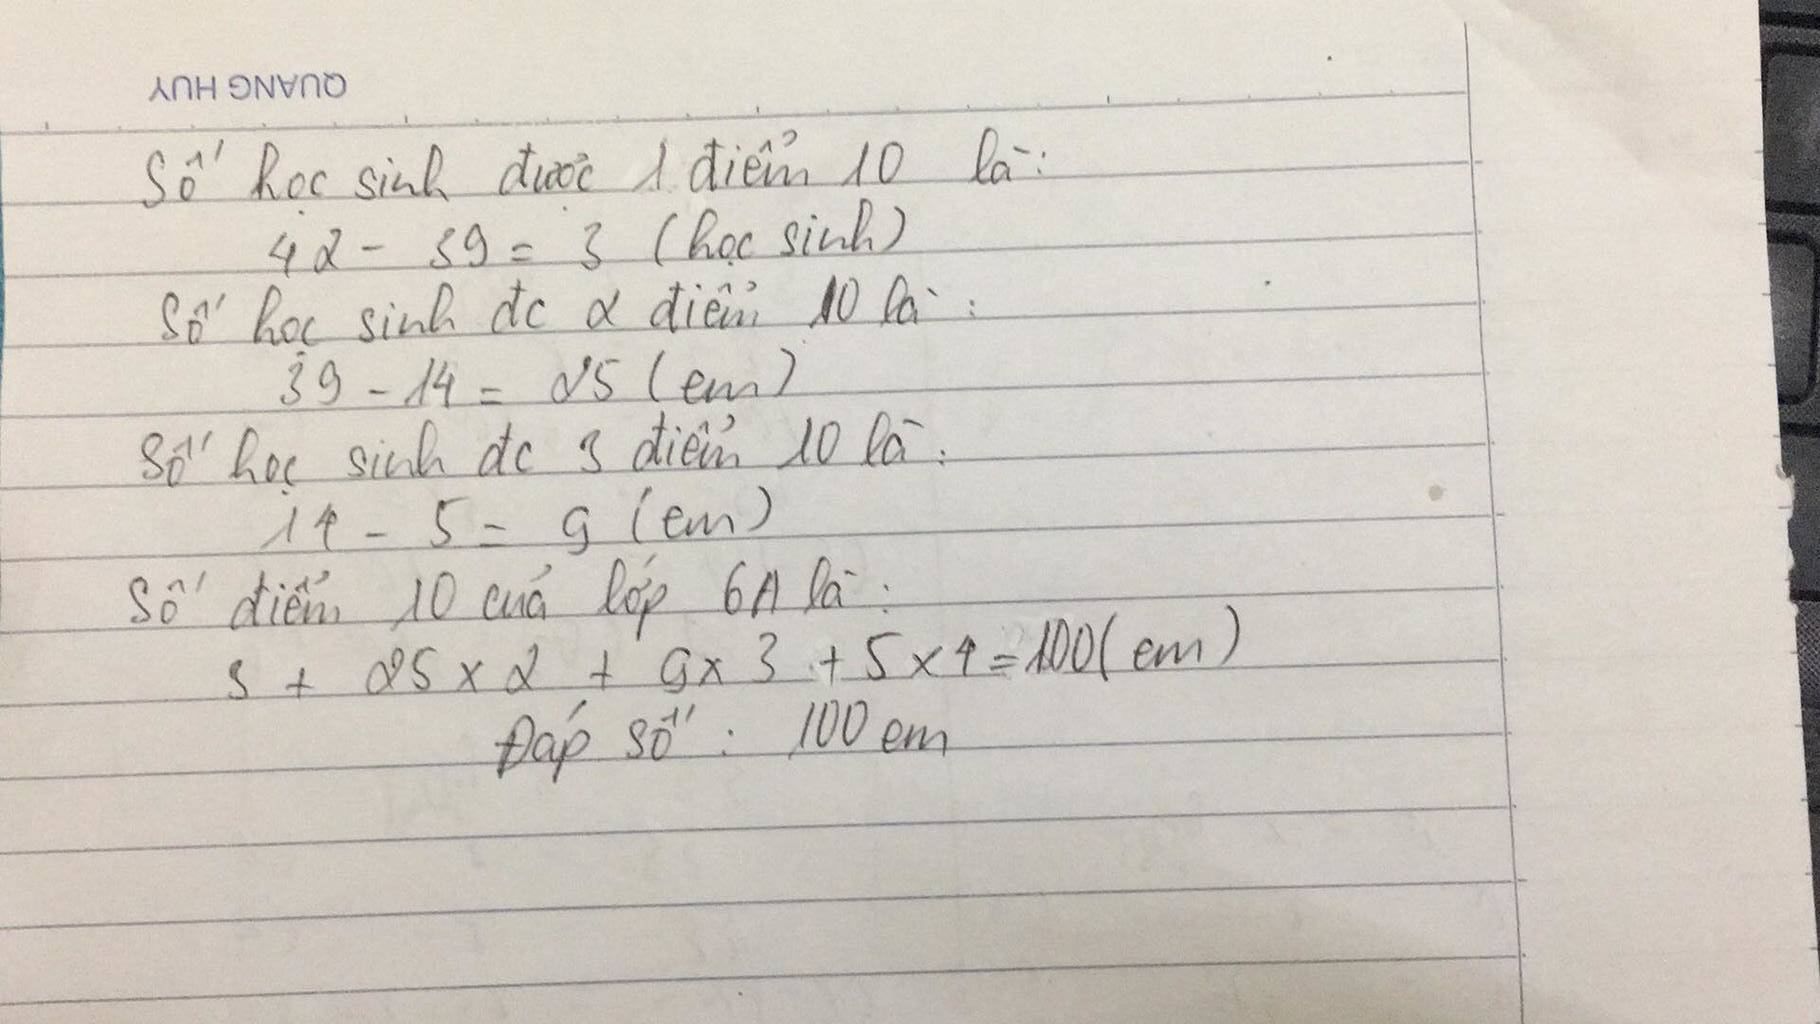 QUANG HUY
Số học sinh được 1 điểm 10 là:
42 - 39 = 3 (học sinh)
Số học sinh đc 2 điểm 10 là:
39 - 14 = 25 (em)
Số học sinh đc 3 điểm 10 là:
14 - 5 = 9 (em)
Số điểm 10 của lớp 6A là:
3 + 25 x 2 + 9 x 3 + 5 x 4 = 100 (em)
Đáp số : 100 em